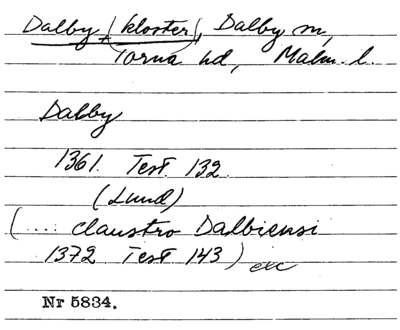 Dalby (kloster), Dalby sn,
Torna hd, Malm. l.
Dalby
1361. Test. 132.
(Lund)
(.... claustro Dalbiensi
1372 Test 143) exc
Nr 5834.